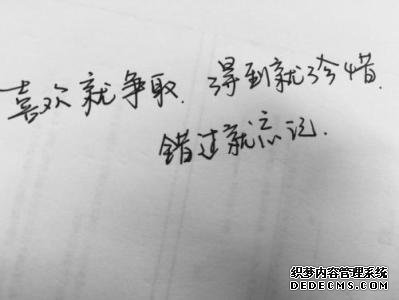 喜欢就争取.得到就珍惜.
错过就忘记.
织梦内容管理系统
DEDECMS.COM